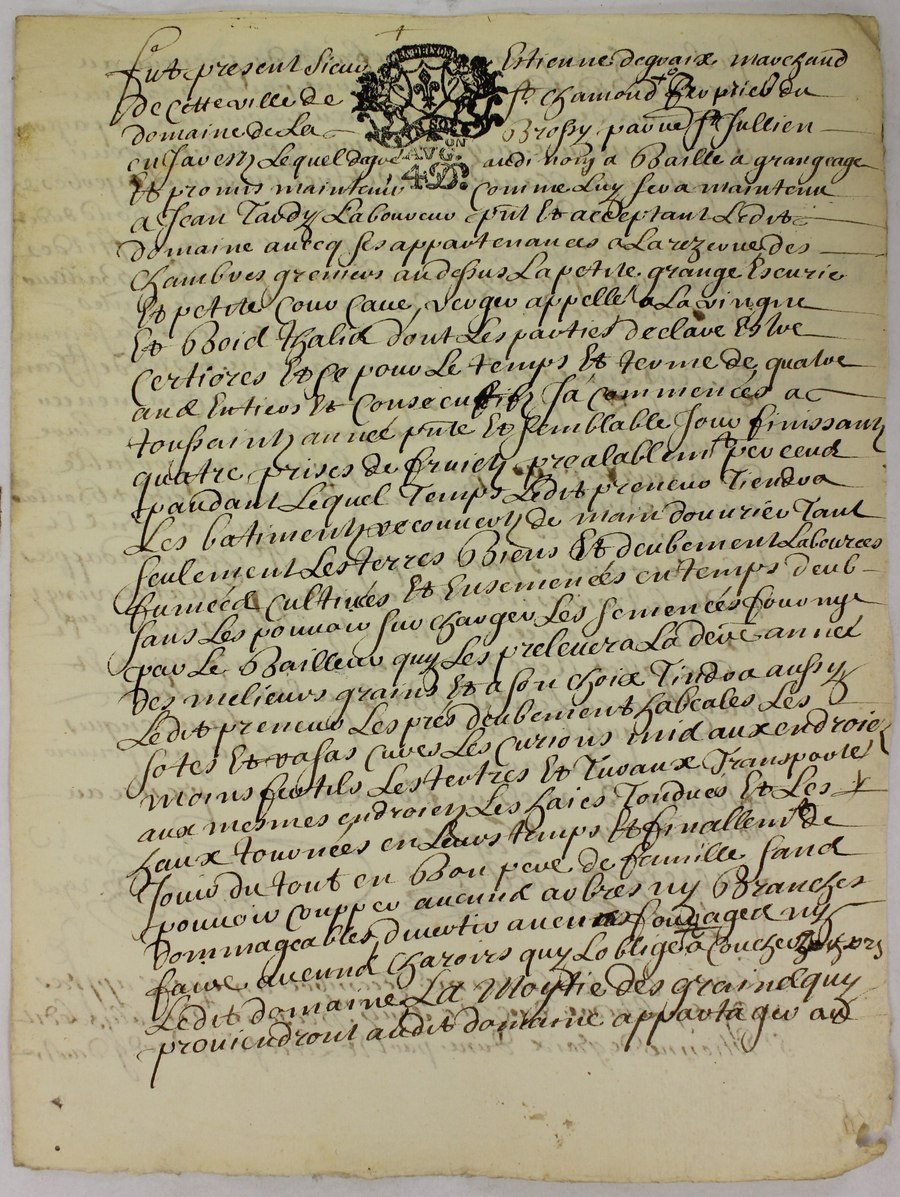 fut present Sieur Estienne degraix marchand
de Cette ville de St chamond proprier du
domaine de La Brossy paroe St Jullien
en Javesz Lequel de gre audi nom a Baille a grangeage
Et promis maintenir Comme Luy sera maintenu
a Jean Tardy Laboureur pnt Et acceptant Ledit
domaine avecq ses appartenances a La rezerve des
Chambres greniers au dessus La petite grange Escurie
Et petite Cour Cave, verger appelle La vingne
Et Boid dont Les parties declare Estre
Certiores Et Ce pour Le temps Et terme de quatre
and Entiers Et Consecutifz Ja Commences a
toussaintz annee pnte Et semblable Jour finissantz
quatre prises de fruictz prealablemt perceud
pandant Lequel Temps Ledit preneur Tiendra
Les batimentz recouvertz de main douvrier Tant
seulement Les terres Biens Et deubement Labourees
fumeéd Cultivés Et Ensemencées en temps deub
sans Les pouvoir sur charger Les semencés fournys
par Le Bailleur quy Les prelevera La dere année
des melieurs grains Et a son choix Tindra aussy
Ledit preneur Les prés deubement Les
sotes Et rasas Cures Les Curions mid aux endroie
moins fertils Les tertres Et Turaux Transporte
aux mesmes endroietz Les haies Tondués Et Les
haux tournées en Leurs temps Et finallemt de
Jouir du tout en Bon pere de famille sand
pouvoir Coupper aucund arbres ny Branches
dommageables, divertir aucuns fourrages ny
faire aucund charoirs quy Loblige a Coucher
Ledit domaine La Moytie des graind quy
proviendront audit domaine appartager ad
AVG.ON
4 S D.